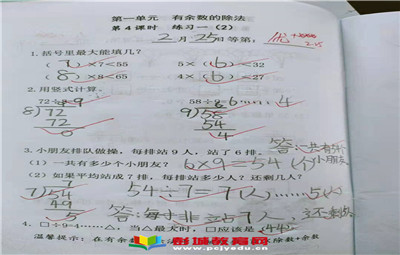 第一单元 有余数的除法
第4课时 练习一(2)
2月25日等第: 优
1.括号里最大能填几?
( 7 )×7<55 5×( 6 )<32
( 8 )×8<65 4×( 6 )<27
2.用竖式计算。
72÷8=9 58÷9=6……4
8)72 9)58
72 54
0 4
3.小朋友排队做操,每排站9人,站了6排。 答:一共有54
(1)一共有多少个小朋友? 6×9=54(个) 小朋友
(2)如果平均站成7排,每排站多少人?还剩几人?
7
7)54 54÷7=7(人)……5(人)
49
5 答:每排站7人,还剩
4.□÷9=4……△,当△最大时,□应该是(44)
温馨提示:在有余数
彭城教育网
www.pcjyedu.cn
除数+余数